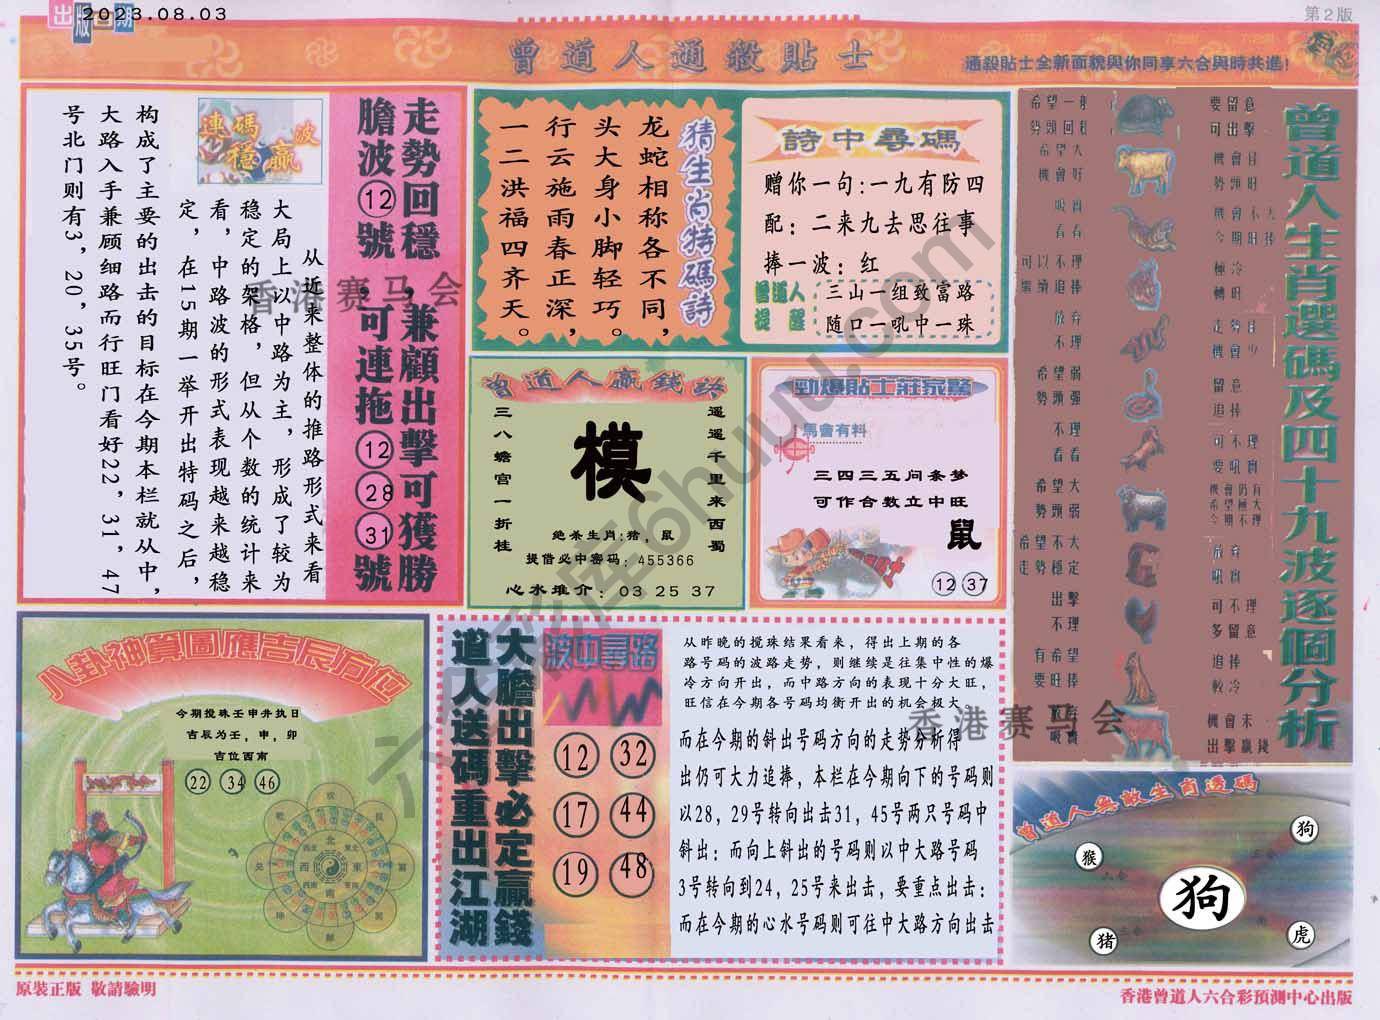 出版日期
2023.08.03
第2版
曾道人通殺貼士
通殺貼士全新面貌與你同享六合與時共進!
走勢回穩,兼顧出擊可獲勝
膽波⑫號,可連拖⑫㉘㉛號
連碼波
穩贏
从近来整体的推路形式来看
大局上以中路为主,形成了较为
稳定的架格,但从个数的统计来
看,中路波的形式表现越来越稳
定,在15期一举开出特码之后,
构成了主要的出击的目标在今期本栏就从中,
大路入手兼顾细路而行旺门看好22,31,47
号北门则有3,20,35号。
猜生肖特碼詩
龙蛇相称各不同,
头大身小脚轻巧。
行云施雨春正深,
一二洪福四齐天。
詩中尋碼
赠你一句:一九有防四
配:二来九去思往事
捧一波:红
曾道人
提醒
三山一组致富路
随口一吼中一珠
曾道人贏錢
遥遥千里来西蜀
模
三八蟾宫一折桂
绝杀生肖:猪,鼠
提借必中密码:455366
心水堆介:03 25 37
勁爆貼士莊家驚
馬會有料
三四三五问条梦
可作合数立中旺
鼠
12 37
曾道人生肖選碼及四十九波逐個分析
希望一般
勢頭回穩
要留意
可出擊
希望大
機會好
機會佳
勢頭旺
吸實
看看
機會不大
今期旺捧
可以不理
繼續追捧
極冷
轉旺
放弃
不理
走勢佳
機會少
希望弱
勢頭强
留意
追捧
不理
看看
可不理
要吸實
希望大
勢頭弱
機會仍有
希望極大
今期不理
希望不大
走勢穩定
放弃
吸實
出擊
不理
可不理
多留意
有希望
要旺捧
追捧
較冷
吸實
機會未
出擊贏錢
八卦神算圖應吉辰方位
今期搅珠壬申并执日
吉辰为壬,申,卯
吉位西南
22 34 46
北
西
東
南
大膽出擊必定贏錢
道人送碼重出江湖
波中尋路
12 32
17 44
19 48
从昨晚的搅珠结果看来,得出上期的各
路号码的波路走势,则继续是往集中性的爆
冷方向开出,而中路方向的表现十分大旺,
旺信在今期各号码均衡开出的机会极大
而在今期的斜出号码方向的走势分析得
出仍可大力追捧,本栏在今期向下的号码则
以28,29号转向出击31,45号两只号码中
斜出:而向上斜出的号码则以中大路号码
3号转向到24,25号来出击,要重点出击:
而在今期的心水号码则可往中大路方向出击
曾道人無敵生肖透碼
狗
猴
狗
猪
虎
香港赛马会
香港赛马会
原裝正版 敬請驗明
香港曾道人六合彩預測中心出版